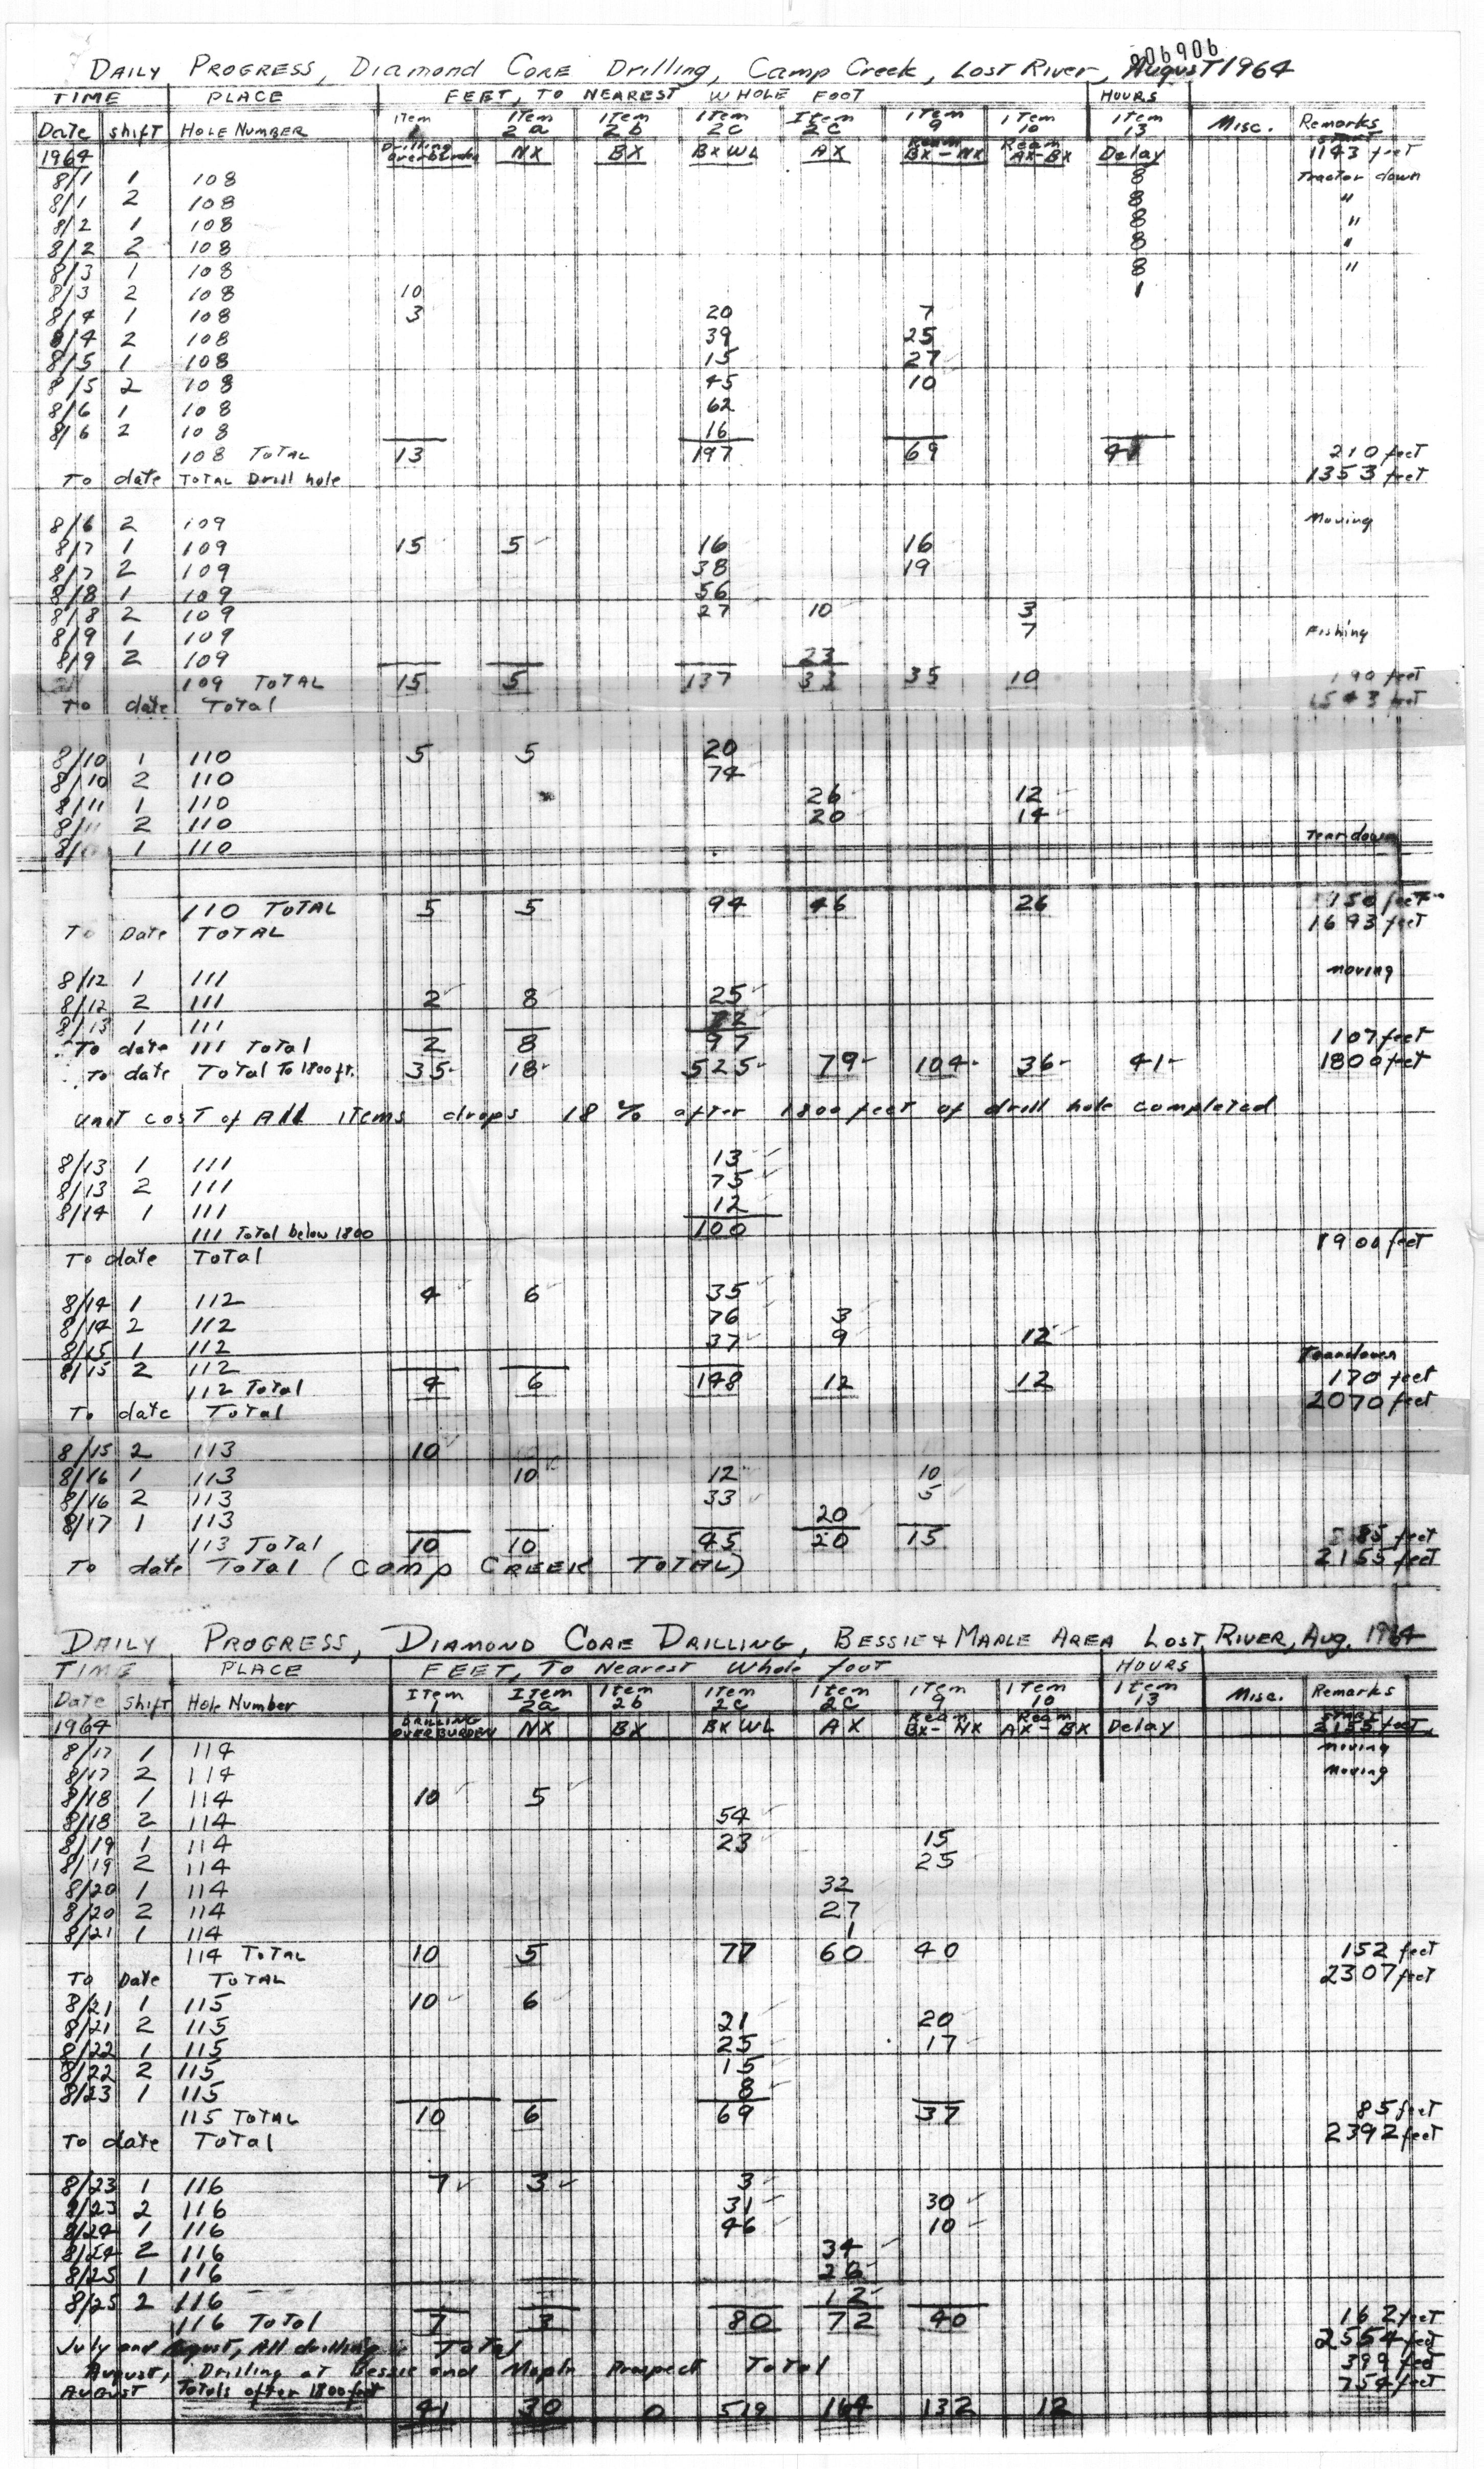 006906
DAILY PROGRESS, Diamond CORE Drilling, Camp Creek, Lost River, August 1964
TIME PLACE FEET, TO NEAREST WHOLE FOOT HOURS
Date shift HOLE NUMBER Item 1 Item 2a Item 2b Item 2c Item 2c Item 9 Item 10 Item 13 Misc. Remarks
1964 Drilling overburden NX BX BX WL AX Ream BX-NX Ream AX-BX Delay START 1143 feet
8/1 1 108 8 Tractor down
8/1 2 108 8 "
8/2 1 108 8 "
8/2 2 108 8 "
8/3 1 108 8 "
8/3 2 108 10 1
8/4 1 108 3 20 7
8/4 2 108 39 25
8/5 1 108 15 27
8/5 2 108 45 10
8/6 1 108 62
8/6 2 108 16
108 TOTAL 13 197 69 41 210 feet
To date TOTAL Drill hole 1353 feet
8/6 2 109 Moving
8/7 1 109 15 5 16 16
8/7 2 109 38 19
8/8 1 109 56
8/8 2 109 27 10 3
8/9 1 109 7 Fishing
8/9 2 109 23
109 TOTAL 15 5 137 33 35 10 190 feet
To date Total 1543 feet
8/10 1 110 5 5 20
8/10 2 110 74
8/11 1 110 26 12
8/11 2 110 20 14
1 110 Tear down
110 TOTAL 5 5 94 46 26 150 feet
To Date TOTAL 1693 feet
8/12 1 111 moving
8/12 2 111 2 8 25
8/13 1 111 72
To date 111 Total 2 8 97 107 feet
To date Total To 1800 ft. 35 18 525 79 104 36 41 1800 feet
Unit cost of All items drops 18 % after 1800 feet of drill hole completed
8/13 1 111 13
8/13 2 111 75
8/14 1 111 12
111 Total below 1800 100
To date Total 1900 feet
8/14 1 112 4 6 35
8/14 2 112 76 3
8/15 1 112 37 9 12
8/15 2 112 Teardown
112 Total 4 6 148 12 12 170 feet
To date Total 2070 feet
8/15 2 113 10
8/16 1 113 10 12 10
8/16 2 113 33 5
8/17 1 113 20
113 Total 10 10 45 20 15 85 feet
To date Total (Camp CREEK TOTAL) 2155 feet
DAILY PROGRESS, DIAMOND CORE DRILLING, BESSIE & MAPLE AREA LOST RIVER, Aug. 1964
TIME PLACE FEET, To Nearest Whole foot HOURS
Date Shift Hole Number Item 1 Item 2a Item 2b Item 2c Item 2c Item 9 Item 10 Item 13 Misc. Remarks
1964 DRILLING OVERBURDEN NX BX BX WL AX Ream BX-NX Ream AX-BX Delay START 2155 feet
8/17 1 114 moving
8/17 2 114 moving
8/18 1 114 10 5
8/18 2 114 54
8/19 1 114 23 15
8/19 2 114 25
8/20 1 114 32
8/20 2 114 27
8/21 1 114 1
114 TOTAL 10 5 77 60 40 152 feet
To Date TOTAL 2307 feet
8/21 1 115 10 6
8/21 2 115 21 20
8/22 1 115 25 17
8/22 2 115 15
8/23 1 115 8
115 TOTAL 10 6 69 37 85 feet
To date Total 2392 feet
8/23 1 116 7 3 3
8/23 2 116 31 30
8/24 1 116 46 10
8/24 2 116 34
8/25 1 116 26
8/25 2 116 12
116 Total 7 3 80 72 40 162 feet
July and August, All drilling Total 2554 feet
August, Drilling at Bessie and Maple Prospect Total 399 feet
AUGUST Totals after 1800 feet 754 feet
41 30 0 519 164 132 12